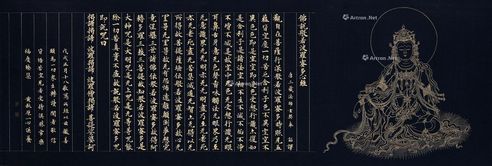 佛說般若波羅蜜多心經
觀自在菩薩行深般若波羅蜜多時照見五
蘊皆空度一切苦厄舍利子色不異空空不
異色色即是空空即是色受想行識亦復如
是舍利子是諸法空相不生不滅不垢不淨
不增不減是故空中无色无受想行識无眼
耳鼻舌身意无色聲香味觸法无眼界乃至
无意識界无无明亦无无明盡乃至无老死
亦无老死盡无苦集滅道无智亦无得以无
所得故菩提薩埵依般若波羅蜜多故心无
罣礙无罣礙故无有恐怖遠離顛倒夢想究
竟涅槃三世諸佛依般若波羅蜜多故得阿
耨多羅三藐三菩提故知般若波羅蜜多是
大神咒是大明咒是无上咒是无等等咒能
除一切苦真實不虛故說般若波羅蜜多咒
即說咒曰
揭諦揭諦 波羅揭諦 波羅僧揭諦 菩提薩婆訶